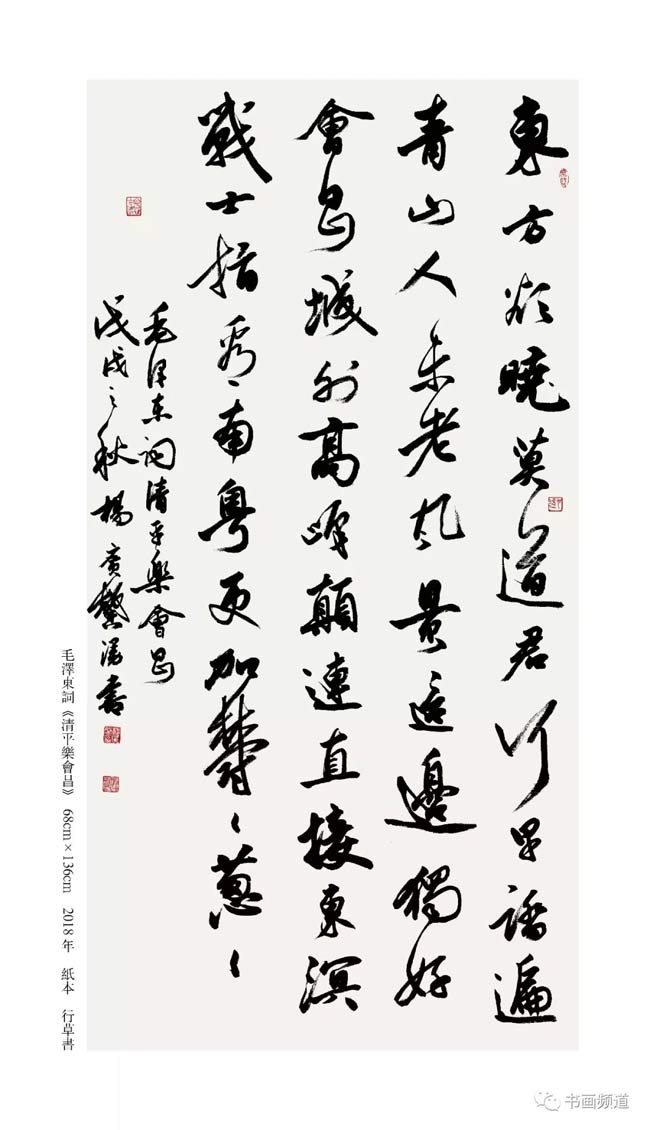 東方欲曉莫道君行早踏遍
青山人未老風景這邊獨好
會昌城外高峰顛連直接東溟
戰士指看南粵更加鬱〻蔥〻
毛澤東詞清平樂會昌
戊戌之秋楊廣馨書
毛澤東詞《清平樂會昌》 68cm×136cm 2018年 紙本 行草書
书画频道